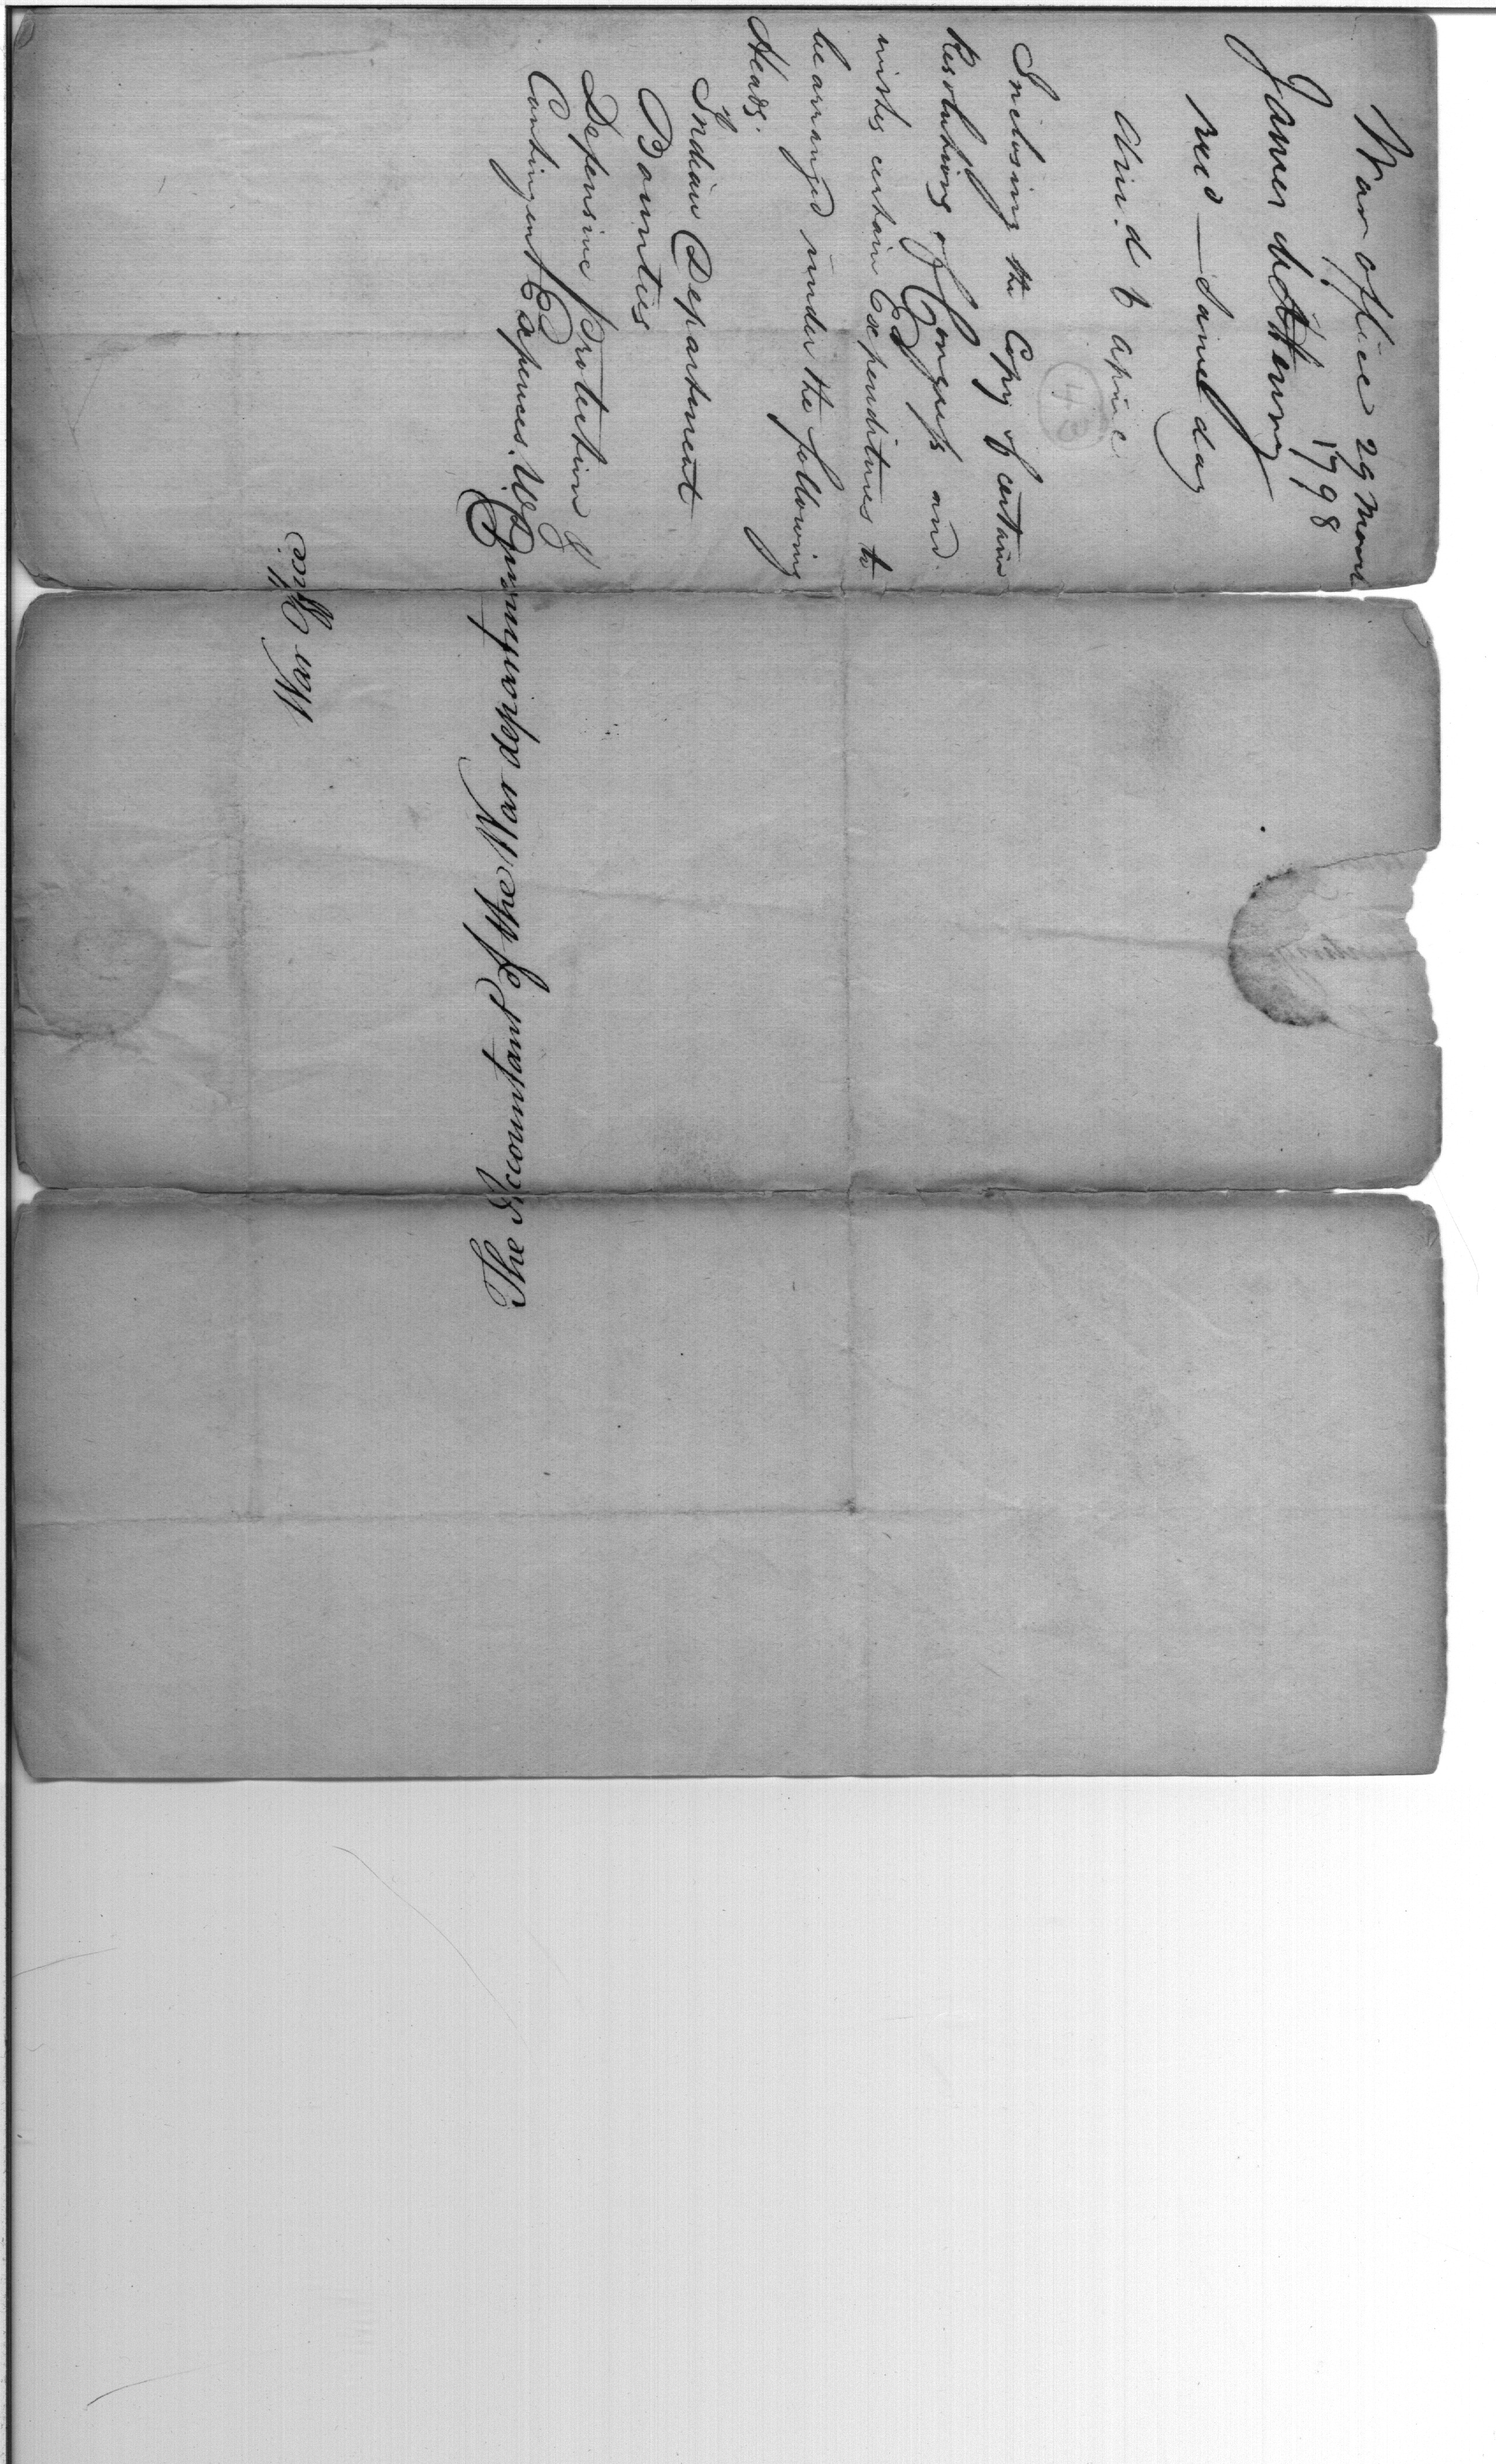 War office 29 March
1798
James McHenry
recd — same day
Ans.d 6 April
43
Inclosing the Copy of certain
Resolutions of Congress and
wishes certain Expenditures to
be arranged under the following
Heads.
Indian Department
Bounties
Defensive Protection &
Contingent Expences.
The Accountant of the War department
War Office